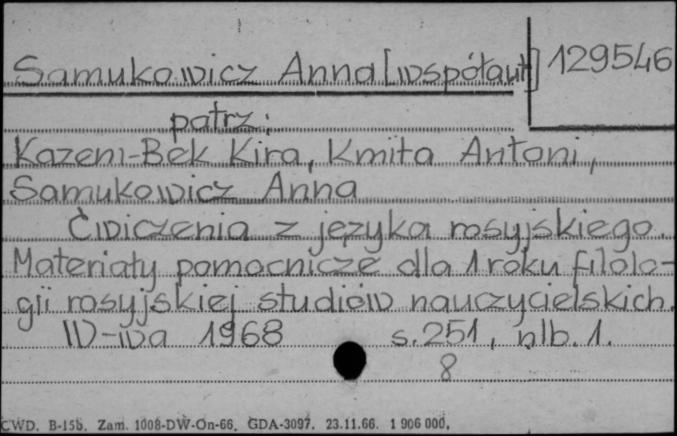 Samukowicz Anna [współaut] 129546
patrz:
Kazem-Bek Kira, Kmita Antoni,
Samukowicz Anna
Ćwiczenia z języka rosyjskiego.
Materiały pomocnicze dla 1 roku filolo-
gii rosyjskiej studiów nauczycielskich.
W-wa 1968 s. 251, nlb. 1.
8
CWD. B-15b. Zam. 1008-DW-On-66. GDA-3097. 23.11.66. 1 906 000.